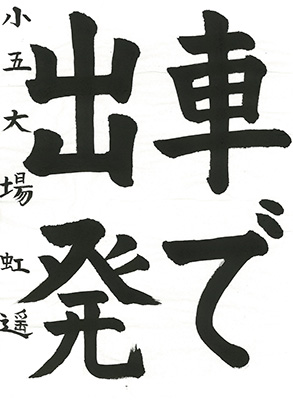 車で
出発
小五大場虹遥